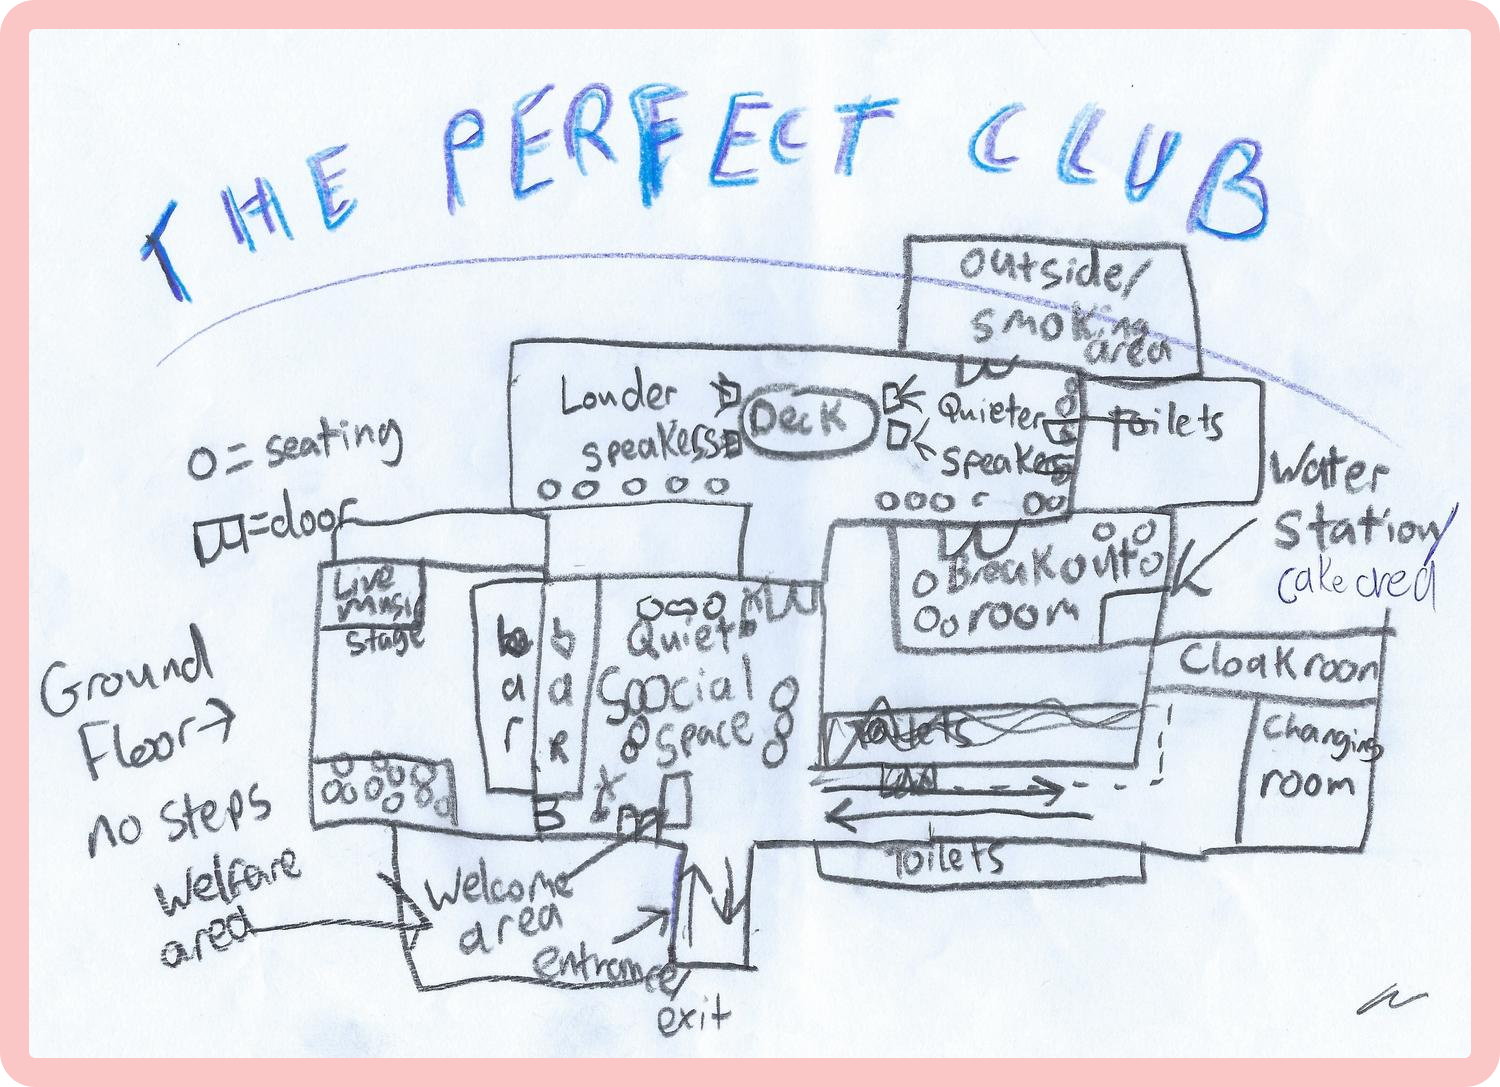 THE PERFECT CLUB
outside/
smoking
area
Louder
speakers
Deck
Quieter
speakers
toilets
o = seating
=door
Water
Station/
cake area
Live
music
stage
bar
bar
Quiet
Soocial
space
Breakout
room
Cloakroom
Changing
room
Toilets
Ground
Floor→
no steps
Welfare
area
Welcome
area
entrance/
exit
Toilets